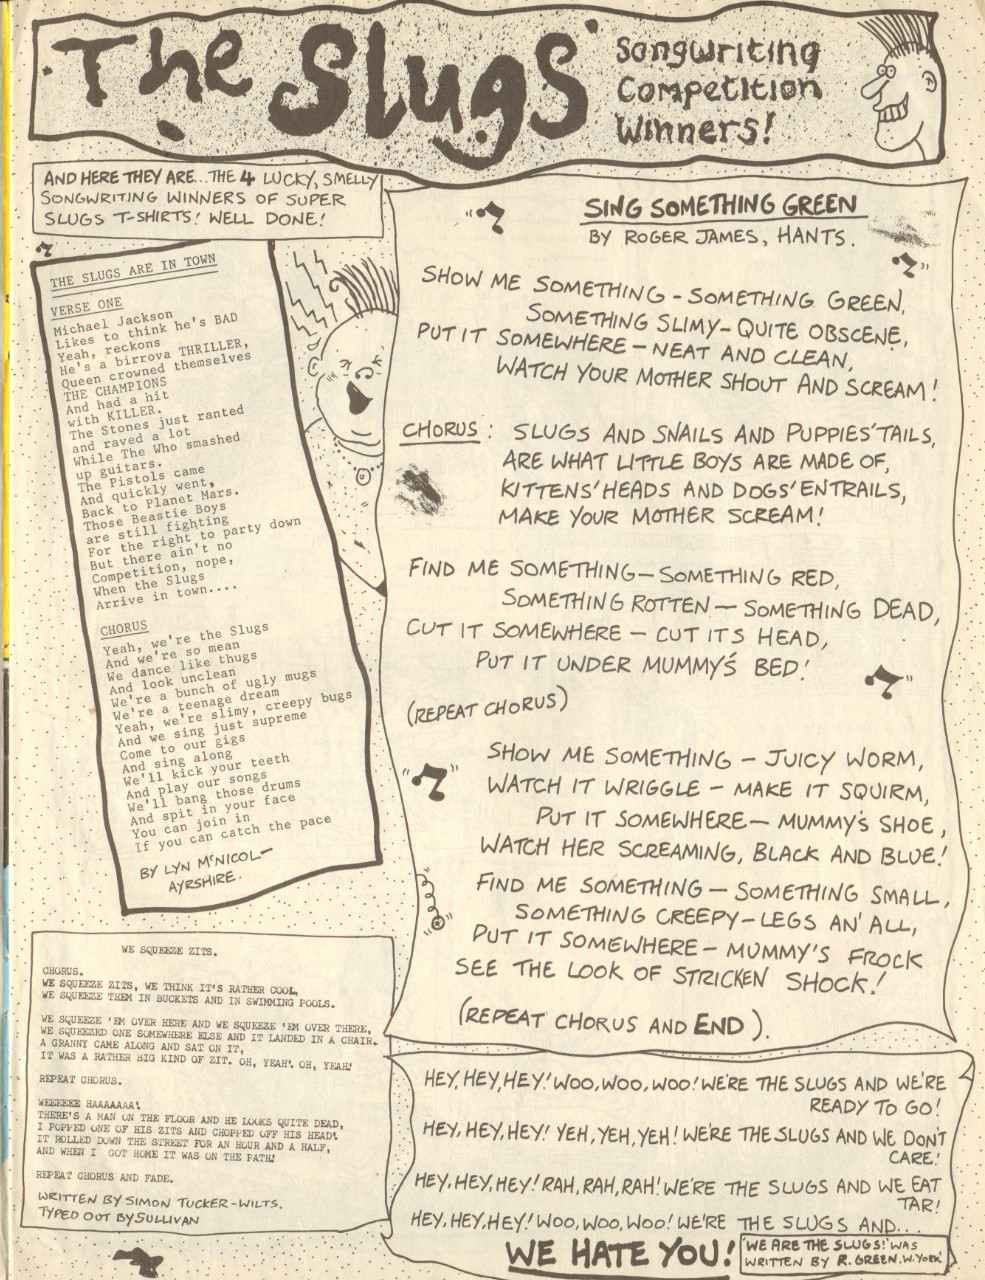 The Slugs'
Songwriting
Competition
Winners!
AND HERE THEY ARE...THE 4 LUCKY, SMELLY
SONGWRITING WINNERS OF SUPER
SLUGS T-SHIRTS! WELL DONE!
THE SLUGS ARE IN TOWN
VERSE ONE
Michael Jackson
Likes to think he's BAD
Yeah, reckons
He's a birrova THRILLER,
Queen crowned themselves
THE CHAMPIONS
And had a hit
with KILLER.
The Stones just ranted
and raved a lot
While The Who smashed
up guitars.
The Pistols came
And quickly went,
Back to Planet Mars.
Those Beastie Boys
are still fighting
For the right to party down
But there ain't no
Competition, nope,
When the Slugs
Arrive in town....
CHORUS
Yeah, we're the Slugs
And we're so mean
We dance like thugs
And look unclean
We're a bunch of ugly mugs
We're a teenage dream
Yeah, we're slimy, creepy bugs
And we sing just supreme
Come to our gigs
And sing along
We'll kick your teeth
And play our songs
We'll bang those drums
And spit in your face
You can join in
If you can catch the pace
BY LYN McNICOL-
AYRSHIRE.
WE SQUEEZE ZITS.
CHORUS.
WE SQUEEZE ZITS, WE THINK IT'S RATHER COOL,
WE SQUEEZE THEM IN BUCKETS AND IN SWIMMING POOLS.
WE SQUEEZE 'EM OVER HERE AND WE SQUEEZE 'EM OVER THERE,
WE SQUEEZED ONE SOMEWHERE ELSE AND IT LANDED IN A CHAIR.
A GRANNY CAME ALONG AND SAT ON IT,
IT WAS A RATHER BIG KIND OF ZIT. OH, YEAH!. OH, YEAH!
REPEAT CHORUS.
WEEEEEE HAAAAAAA!
THERE'S A MAN ON THE FLOOR AND HE LOOKS QUITE DEAD,
I POPPED ONE OF HIS ZITS AND CHOPPED OFF HIS HEAD!
IT ROLLED DOWN THE STREET FOR AN HOUR AND A HALF,
AND WHEN I GOT HOME IT WAS ON THE PATH!
REPEAT CHORUS AND FADE.
WRITTEN BY SIMON TUCKER-WILTS.
TYPED OUT BY SULLIVAN
SING SOMETHING GREEN
BY ROGER JAMES, HANTS.
SHOW ME SOMETHING - SOMETHING GREEN,
SOMETHING SLIMY-QUITE OBSCENE,
PUT IT SOMEWHERE - NEAT AND CLEAN,
WATCH YOUR MOTHER SHOUT AND SCREAM!
CHORUS: SLUGS AND SNAILS AND PUPPIES' TAILS,
ARE WHAT LITTLE BOYS ARE MADE OF,
KITTENS' HEADS AND DOGS' ENTRAILS,
MAKE YOUR MOTHER SCREAM!
FIND ME SOMETHING-SOMETHING RED,
SOMETHING ROTTEN - SOMETHING DEAD,
CUT IT SOMEWHERE - CUT ITS HEAD,
PUT IT UNDER MUMMY'S BED!
(REPEAT CHORUS)
SHOW ME SOMETHING - JUICY WORM,
WATCH IT WRIGGLE - MAKE IT SQUIRM,
PUT IT SOMEWHERE - MUMMY'S SHOE,
WATCH HER SCREAMING, BLACK AND BLUE!
FIND ME SOMETHING - SOMETHING SMALL,
SOMETHING CREEPY-LEGS AN' ALL,
PUT IT SOMEWHERE - MUMMY'S FROCK
SEE THE LOOK OF STRICKEN SHOCK!
(REPEAT CHORUS AND END).
HEY, HEY, HEY! WOO, WOO, WOO! WE'RE THE SLUGS AND WE'RE
READY TO GO!
HEY, HEY, HEY! YEH, YEH, YEH! WE'RE THE SLUGS AND WE DON'T
CARE!
HEY, HEY, HEY! RAH, RAH, RAH! WE'RE THE SLUGS AND WE EAT
TAR!
HEY, HEY, HEY! WOO, WOO, WOO! WE'RE THE SLUGS AND...
WE HATE YOU!
'WE ARE THE SLUGS!' WAS
WRITTEN BY R. GREEN. W. YORK.